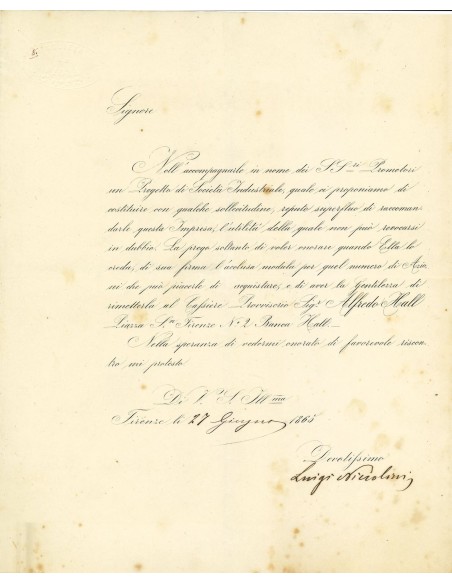 Signore
Nell'accompagnarle in nome dei S.S.ri Promotori
un Progetto di Società Industriale, quale ci proponiamo di
costituire con qualche sollecitudine, reputo superfluo di raccoman-
darle questa Impresa, l'utilità della quale non può revocarsi
in dubbio. La prego soltanto di voler onorare quando Ella lo
creda, di sua firma l'acclusa modula per quel numero di Azio-
ni che può piacerle di acquistare, e di aver la Gentilezza di
rimetterla al Cassiere Provvisorio Sig.r Alfredo Hall
Piazza S.n Firenze N.o 2 Banca Hall.
Nella speranza di vedermi onorato di favorevole riscon-
tro mi protesto
D. V. S. Ill.ma
Firenze li 27 Giugno 1865
Devotissimo
Luigi Niccolini